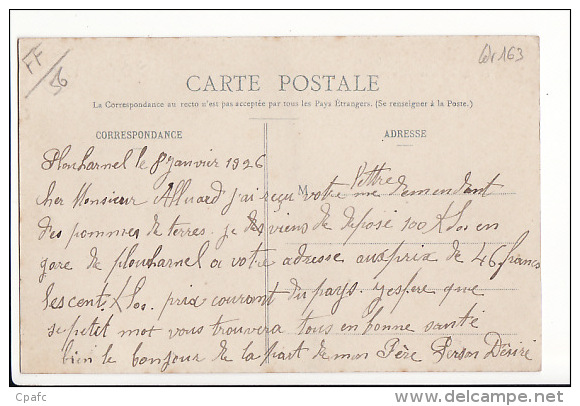 FF
56
Cdr 163
CARTE POSTALE
La Correspondance au recto n'est pas acceptée par tous les Pays Étrangers. (Se renseigner à la Poste.)
CORRESPONDANCE
ADRESSE
M
Plouharnel le 8 janvier 1926
Cher Monsieur Alluard j'ai reçu votre lettre me demendant
des pommes de terres. je des viens de deposé 100 Klos en
gare de plouharnel a votre adresse aux prix de 46 francs
les cent Klos. prix courant du pays. j'espere que
se petit mot vous trouvera tous en bonne santé
bien le bonjour de la part de mon Père Person Désiré
Cpafc
www.delcampe.net